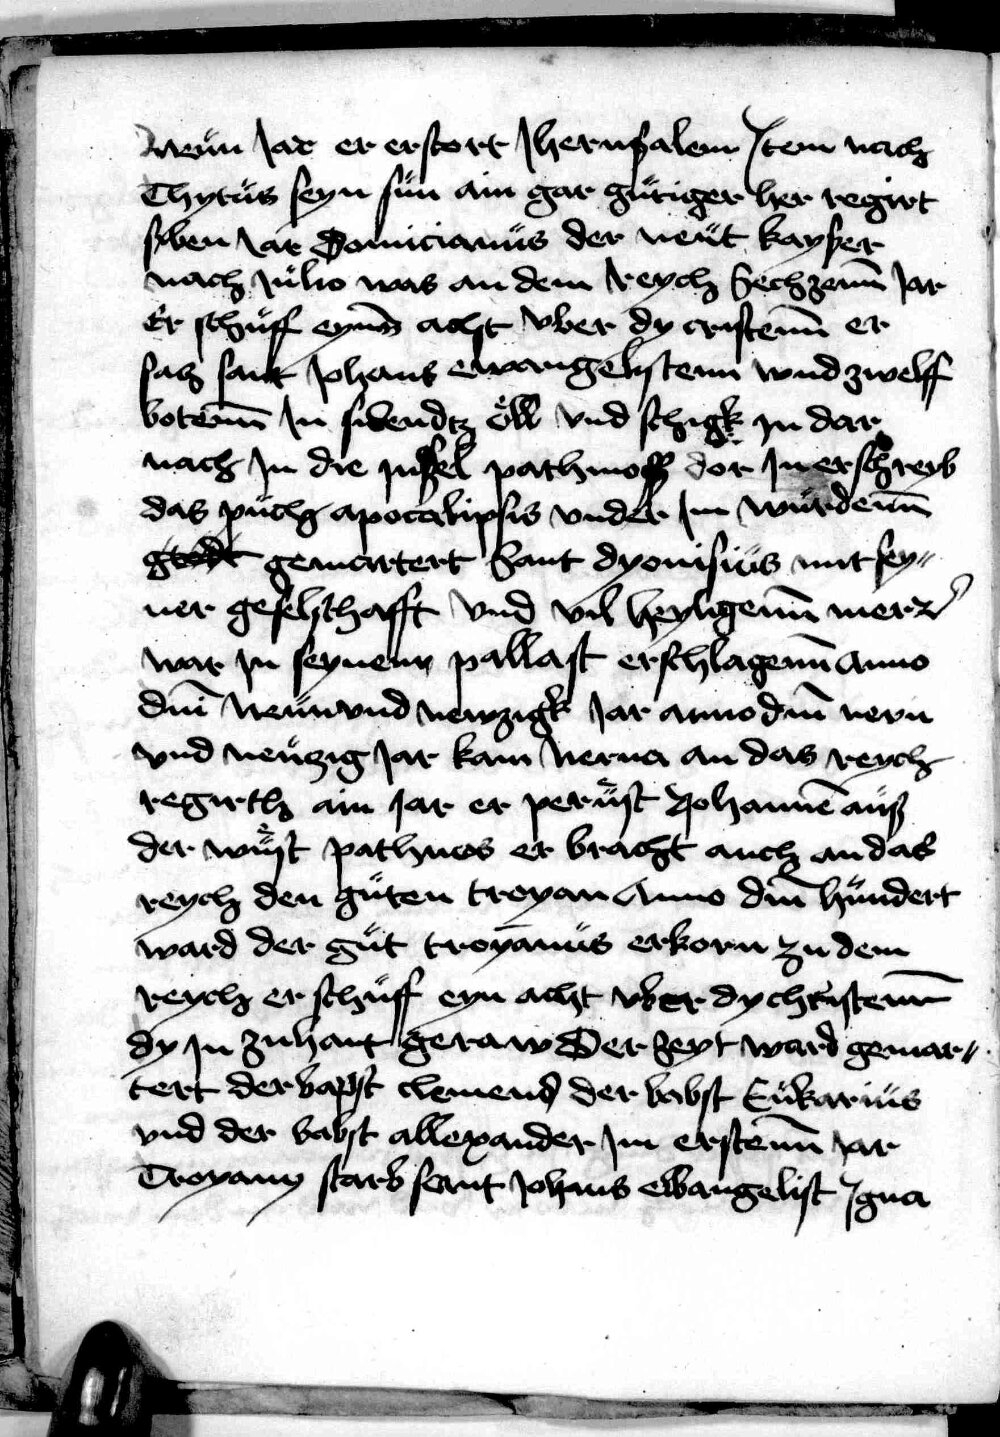 Neün Jar er erstort Jherusalem Jtem nach
Thytüs seyn sün ain gar gütiger her regirt
siben Jar Domicianüs der neüt kayser
nach Jülio was an dem reych Sechzenn Jar
Er schüff eynn acht vber dy cristenn er
satz sant Johans ewangelystenn wnd zwelff
botenn Jn sidendtz öll vnd schigk jn dar
nach Jn die jnsel pathmoss dor Jn er schreyb
das püch apocalipsis vnder Jm würdenn
gemartert Sant dyonisiüs mit sey〃
ner geselschafft vnd vil heyligenn mer er
war Jn seynem pallast erschlagenn Anno
dni Neün vnd newzigk Jar anno dni nevn
vnd neüzig Jar kam Nerua an das reych
regirth ain Jar er perüst Johannem auß
der wüst pathmos er bracht auch an das
reych den güten troyan Anno dni hündert
ward der güt troyanüs erkorn zu dem
reych er schüff eyn acht vber dy christenn
dy jn zu hant geraw Der zeyt ward gemar〃
tert der bapst clemens der babst Eükariüs
vnd der babst allexander Jm erstenn jar
Troyany starb sant Johans ewangelist Jgna